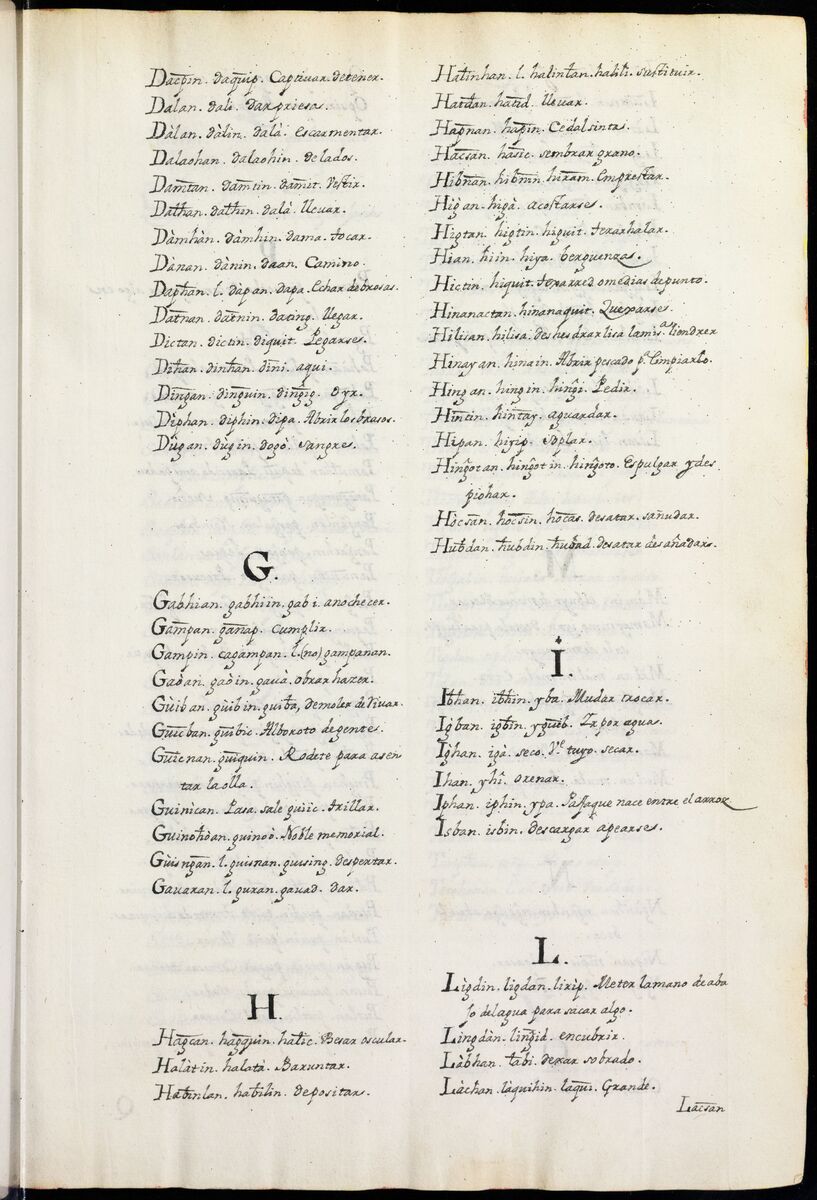 Dac̃pin. daq̃uip. Captivar. detener.
Dalan. dali. dar priesa.
Dàlan. dàlin. dalà. escarmentar.
Dalaohan. dalaohin. de lados.
Dam̃tan. dam̃tin. damit. Vestir.
Dathan. dathin. dalà. Llevar.
Dàmhàn. dàmhin. dama. tocar.
Dànan. dànin. daan. Camino.
Daphan. l. dàpan. dapa. Echar de brosas.
Datnan. datnin. dating. llegar.
Dictan. dictin. diquit. Pegarse.
Dihan. dinhan. dini. aqui.
Dingan. dinguin. dingig. Oyr.
Diphan. diphin. dipa. Abrir los brasos.
Dùgan. dùgin. dogò. sangre.
G.
Gabhian. gabhiin. gabi. anochecer.
Gam̃pan. gan̄ap. Cumplir.
Gampin. cagampan. l. (no) gampanan.
Gaòan. gaòin. gauà. obrar hazer.
Guiban. guibin. guiba, demoler derivar.
Guicban. guibic. Alboroto de gentes.
Guicnan. guiquin. Rodete para asen
tar la olla.
Guinìcan. Pasa. sale guiic. trillar.
Guinohòan. guinoò. Noble memorial.
Guisngan. l. guisnan. guising. despertar.
Gauaran. l. guran. gauad. dar.
H.
Hag̃can. hag̃quin. halic. Besar oscular.
Halàtin. halatà. Baruntar.
Habinlan. habilin. depositar.
Halinhan. l. halintan. halili. sustituir.
Hatdan. hatid. llevar.
Hapnan. hapin. Cedal sinta.
Hacsan. hasic. sembrar grano.
Hibnan. hibmin. hiram. Emprestar.
Higan. higà. acostarse.
Higtan. higtin. higuit. tirar halar.
Hian. hiin. hiya. berguenza.
Hictin. hiquit. texer red o medias de punto.
Hinanactan. hinanaquit. Quexarse.
Hilisan. hilisa. deshesdrar lisa la mis.ª liondrer
Hinayan. hinain. Abrir pescado p.ª limpiarlo.
Hingan. hingin. hingi. Pedir.
Hintin. hintay. aguardar.
Hipan. hiyip. soplar.
Hingotan. hingotin. hingoto. Espulgar y des
piohar.
Hòcsan. hocsin. hocas. desatar. sañudar.
Hubdan. hubdin. hubad. desatar desañadar.
I.
Ibhan. ibhin. yba. Mudar trocar.
Igban. igbin. yguib. Ir por agua.
Ighan. igà. seco. V.ᵉ tuyo. secar.
Ihan. yhi. orenar.
Iphan. iphin. ypa. Paja que nace entre el arroz
Isban. isbin. descargar apearse.
L.
Lìgdin. ligdan. lirip. Meter la mano de aba
jo del agua para sacar algo.
Lingdàn. lingid. encubrir.
Làbhan. labi. dexar sobrado.
Làchan. làquihin. laqui. Grande.
Lacsan